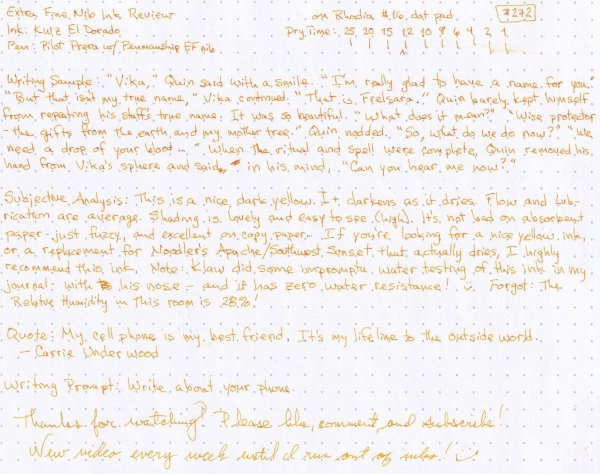 Extra Fine Nib Ink Review on Rhodia #16 dot pad. #272
Ink: KWZ El Dorado Dry Time: 25 20 15 12 10 8 6 4 2 1
Pen: Pilot Prera w/ Penmanship EF nib
Writing Sample: "Vika," Quin said with a smile. "I'm really glad to have a name for you."
"But that isn't my true name," Vika continued. "That is Frelsara." Quin barely kept himself
from repeating his staff's true name. It was so beautiful. "What does it mean?" "Wise protector
- the gifts from the earth and my mother tree." Quin nodded. "So, what do we do now?" "We
need a drop of your blood..." When the ritual and spell were complete, Quin removed his
hand from Vika's sphere and said in his mind, "Can you hear me now?"
Subjective Analysis: This is a nice, dark yellow. It darkens as it dries. Flow and lub-
rication are average. Shading is lovely and easy to see (high). It's not bad on absorbent
paper - just fuzzy, and excellent on copy paper... If you're looking for a nice yellow ink,
or a replacement for Noodler's Apache/Southwest Sunset that actually dries, I highly
recommend this ink. Note: Klaw did some impromptu water testing of this ink in my
journal - with his nose - and it has zero water resistance! :) Forgot: The
Relative Humidity in this room is 28%!
Quote: My cell phone is my best friend. It's my lifeline to the outside world.
- Carrie Underwood
Writing Prompt: Write about your phone.
Thanks for watching! Please like, comment, and subscribe!
New video every week until I run out of inks! :)